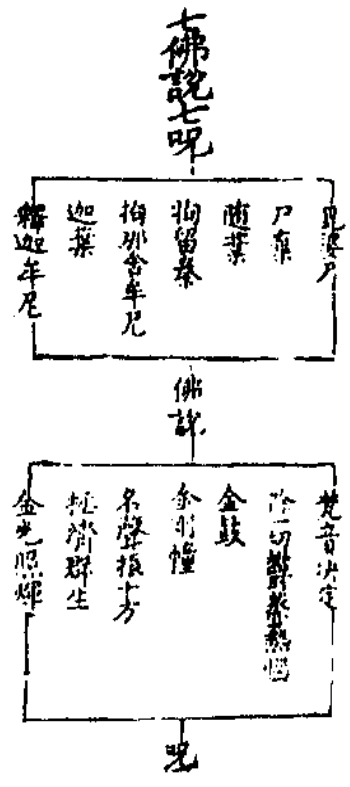 七佛說七呪
毘婆尸
尸棄
隨葉
拘留秦
拘那含牟尼
迦葉
釋迦牟尼
佛說
梵音決定
除一切欝蒸熱惱
金鼓
金剛幢
名聲振十方
拯濟群生
金光照燿
呪